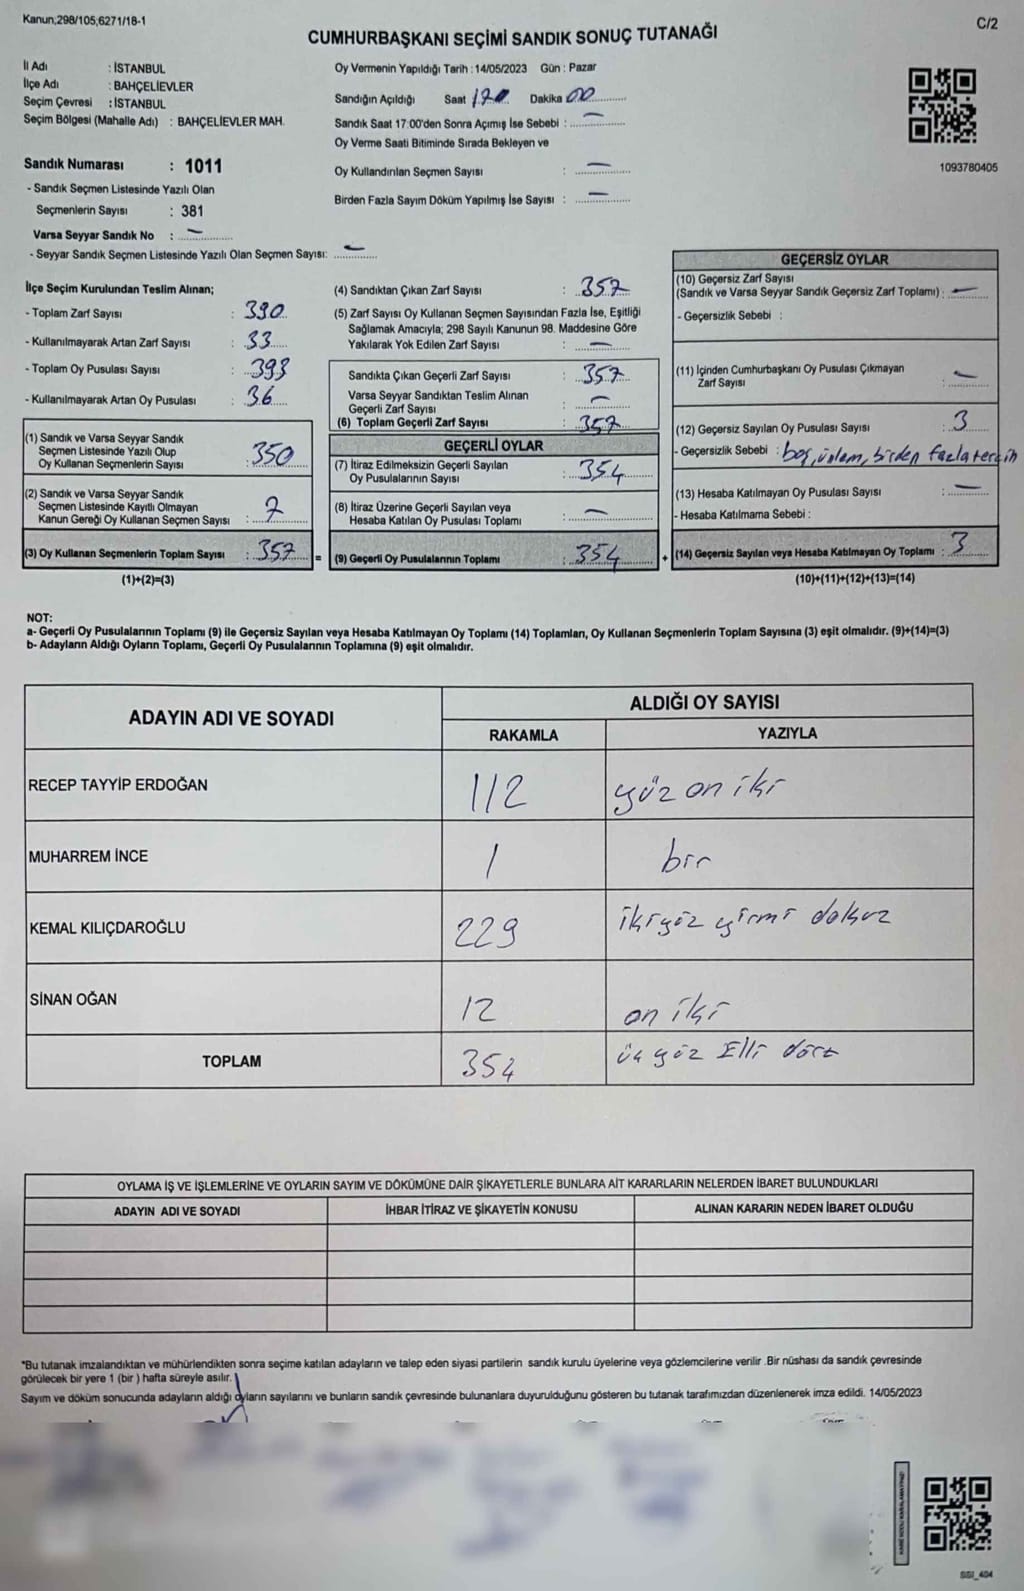 Kanun;298/105;6271/18-1
C/2
CUMHURBAŞKANI SEÇİMİ SANDIK SONUÇ TUTANAĞI
İl Adı : İSTANBUL
İlçe Adı : BAHÇELİEVLER
Seçim Çevresi : İSTANBUL
Seçim Bölgesi (Mahalle Adı) : BAHÇELİEVLER MAH.
Oy Vermenin Yapıldığı Tarih : 14/05/2023 Gün : Pazar
Sandığın Açıldığı Saat Dakika 00
Sandık Saat 17:00'den Sonra Açımış İse Sebebi : —
Oy Verme Saati Bitiminde Sırada Bekleyen ve
Oy Kullandırılan Seçmen Sayısı : —
Birden Fazla Sayım Döküm Yapılmış İse Sayısı : —
1093780405
Sandık Numarası : 1011
- Sandık Seçmen Listesinde Yazılı Olan
Seçmenlerin Sayısı : 381
Varsa Seyyar Sandık No : —
- Seyyar Sandık Seçmen Listesinde Yazılı Olan Seçmen Sayısı: —
İlçe Seçim Kurulundan Teslim Alınan;
- Toplam Zarf Sayısı : 390
- Kullanılmayarak Artan Zarf Sayısı : 33
- Toplam Oy Pusulası Sayısı : 393
- Kullanılmayarak Artan Oy Pusulası : 36
(1) Sandık ve Varsa Seyyar Sandık
Seçmen Listesinde Yazılı Olup
Oy Kullanan Seçmenlerin Sayısı : 350
(2) Sandık ve Varsa Seyyar Sandık
Seçmen Listesinde Kayıtlı Olmayan
Kanun Gereği Oy Kullanan Seçmen Sayısı : 7
(3) Oy Kullanan Seçmenlerin Toplam Sayısı : 357 =
(1)+(2)=(3)
(4) Sandıktan Çıkan Zarf Sayısı : 357
(5) Zarf Sayısı Oy Kullanan Seçmen Sayısından Fazla İse, Eşitliği
Sağlamak Amacıyla; 298 Sayılı Kanunun 98. Maddesine Göre
Yakılarak Yok Edilen Zarf Sayısı : —
Sandıkta Çıkan Geçerli Zarf Sayısı : 357
Varsa Seyyar Sandıktan Teslim Alınan
Geçerli Zarf Sayısı : —
(6) Toplam Geçerli Zarf Sayısı : 357
GEÇERLİ OYLAR
(7) İtiraz Edilmeksizin Geçerli Sayılan
Oy Pusulalarının Sayısı : 354
(8) İtiraz Üzerine Geçerli Sayılan veya
Hesaba Katılan Oy Pusulası Toplamı : —
(9) Geçerli Oy Pusulalarının Toplamı : 354 +
GEÇERSİZ OYLAR
(10) Geçersiz Zarf Sayısı
(Sandık ve Varsa Seyyar Sandık Geçersiz Zarf Toplamı) : —
- Geçersizlik Sebebi :
(11) İçinden Cumhurbaşkanı Oy Pusulası Çıkmayan
Zarf Sayısı : —
(12) Geçersiz Sayılan Oy Pusulası Sayısı : 3
- Geçersizlik Sebebi : boş, birden fazla tercih
(13) Hesaba Katılmayan Oy Pusulası Sayısı : —
- Hesaba Katılmama Sebebi :
(14) Geçersiz Sayılan veya Hesaba Katılmayan Oy Toplamı : 3
(10)+(11)+(12)+(13)=(14)
NOT:
a- Geçerli Oy Pusulalarının Toplamı (9) ile Geçersiz Sayılan veya Hesaba Katılmayan Oy Toplamı (14) Toplamları, Oy Kullanan Seçmenlerin Toplam Sayısına (3) eşit olmalıdır. (9)+(14)=(3)
b- Adayların Aldığı Oyların Toplamı, Geçerli Oy Pusulalarının Toplamına (9) eşit olmalıdır.
ADAYIN ADI VE SOYADI
ALDIĞI OY SAYISI
RAKAMLA YAZIYLA
RECEP TAYYİP ERDOĞAN 112 yüz on iki
MUHARREM İNCE 1 bir
KEMAL KILIÇDAROĞLU 229 ikiyüz yirmi dokuz
SİNAN OĞAN 12 on iki
TOPLAM 354 üç yüz Elli dört
OYLAMA İŞ VE İŞLEMLERİNE VE OYLARIN SAYIM VE DÖKÜMÜNE DAİR ŞİKAYETLERLE BUNLARA AİT KARARLARIN NELERDEN İBARET BULUNDUKLARI
ADAYIN ADI VE SOYADI İHBAR İTİRAZ VE ŞİKAYETİN KONUSU ALINAN KARARIN NEDEN İBARET OLDUĞU
*Bu tutanak imzalandıktan ve mühürlendikten sonra seçime katılan adayların ve talep eden siyasi partilerin sandık kurulu üyelerine veya gözlemcilerine verilir .Bir nüshası da sandık çevresinde
görülecek bir yere 1 (bir ) hafta süreyle asılır.
Sayım ve döküm sonucunda adayların aldığı oyların sayılarını ve bunların sandık çevresinde bulunanlara duyurulduğunu gösteren bu tutanak tarafımızdan düzenlenerek imza edildi. 14/05/2023